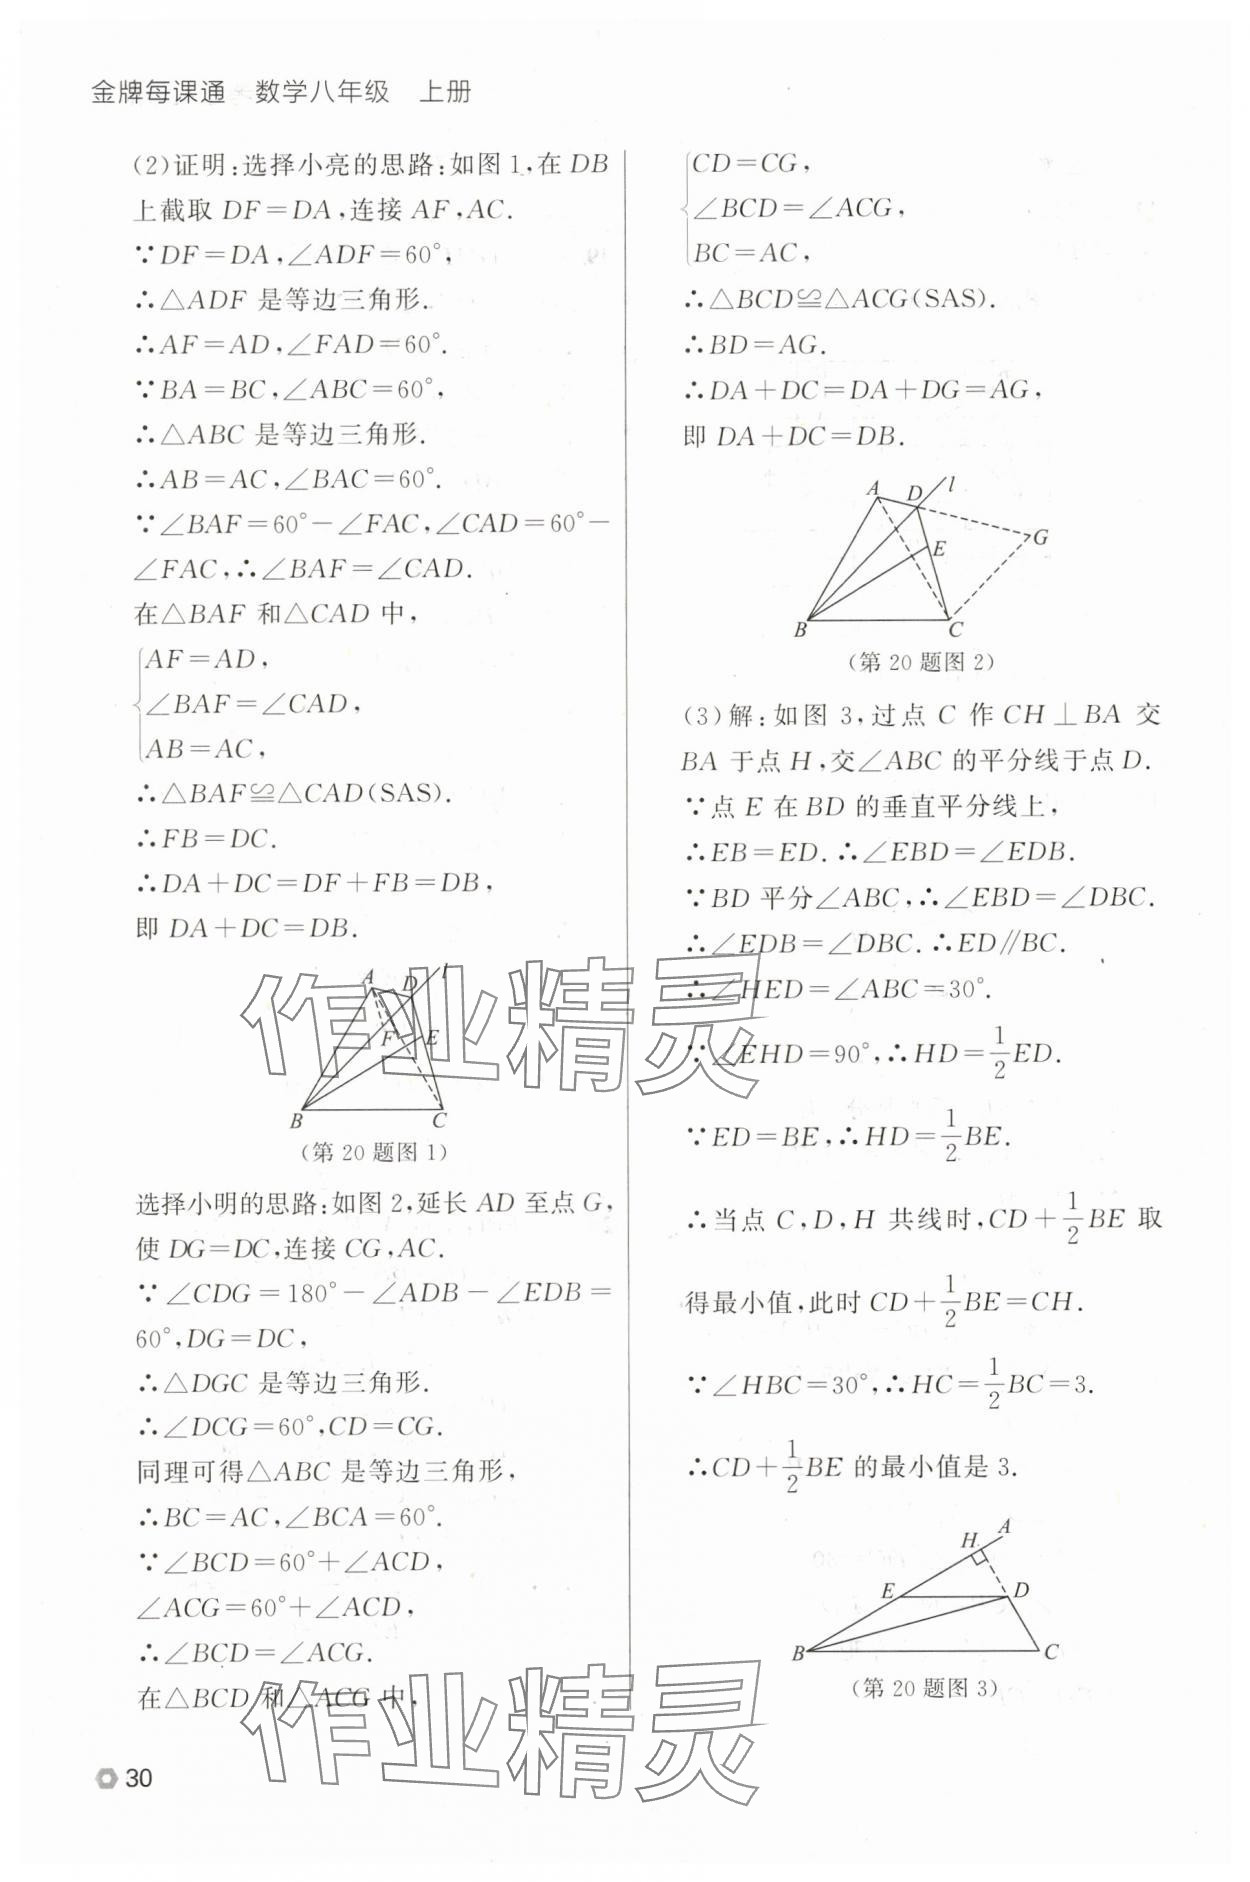 金牌每课通 数学八年级 上册
(2)证明:选择小亮的思路:如图1,在DB
上截取DF=DA,连接AF,AC.
∵DF=DA,∠ADF=60°,
∴△ADF是等边三角形.
∴AF=AD,∠FAD=60°.
∵BA=BC,∠ABC=60°,
∴△ABC是等边三角形.
∴AB=AC,∠BAC=60°.
∵∠BAF=60°-∠FAC,∠CAD=60°-
∠FAC,∴∠BAF=∠CAD.
在△BAF和△CAD中,
AF=AD,
∠BAF=∠CAD,
AB=AC,
∴△BAF≌△CAD(SAS).
∴FB=DC.
∴DA+DC=DF+FB=DB,
即DA+DC=DB.
A D l
F E
B C
(第20题图1)
选择小明的思路:如图2,延长AD至点G,
使DG=DC,连接CG,AC.
∵∠CDG=180°-∠ADB-∠EDB=
60°,DG=DC,
∴△DGC是等边三角形.
∴∠DCG=60°,CD=CG.
同理可得△ABC是等边三角形,
∴BC=AC,∠BCA=60°.
∵∠BCD=60°+∠ACD,
∠ACG=60°+∠ACD,
∴∠BCD=∠ACG.
在△BCD和△ACG中,
CD=CG,
∠BCD=∠ACG,
BC=AC,
∴△BCD≌△ACG(SAS).
∴BD=AG.
∴DA+DC=DA+DG=AG,
即DA+DC=DB.
A D l
G
E
B C
(第20题图2)
(3)解:如图3,过点C作CH⊥BA交
BA于点H,交∠ABC的平分线于点D.
∵点E在BD的垂直平分线上,
∴EB=ED.∴∠EBD=∠EDB.
∵BD平分∠ABC,∴∠EBD=∠DBC.
∴∠EDB=∠DBC.∴ED∥BC.
∴∠HED=∠ABC=30°.
∵∠EHD=90°,∴HD=1/2ED.
∵ED=BE,∴HD=1/2BE.
∴当点C,D,H共线时,CD+1/2BE取
得最小值,此时CD+1/2BE=CH.
∵∠HBC=30°,∴HC=1/2BC=3.
∴CD+1/2BE的最小值是3.
H A
E D
B C
(第20题图3)
作业精灵
作业精灵
30